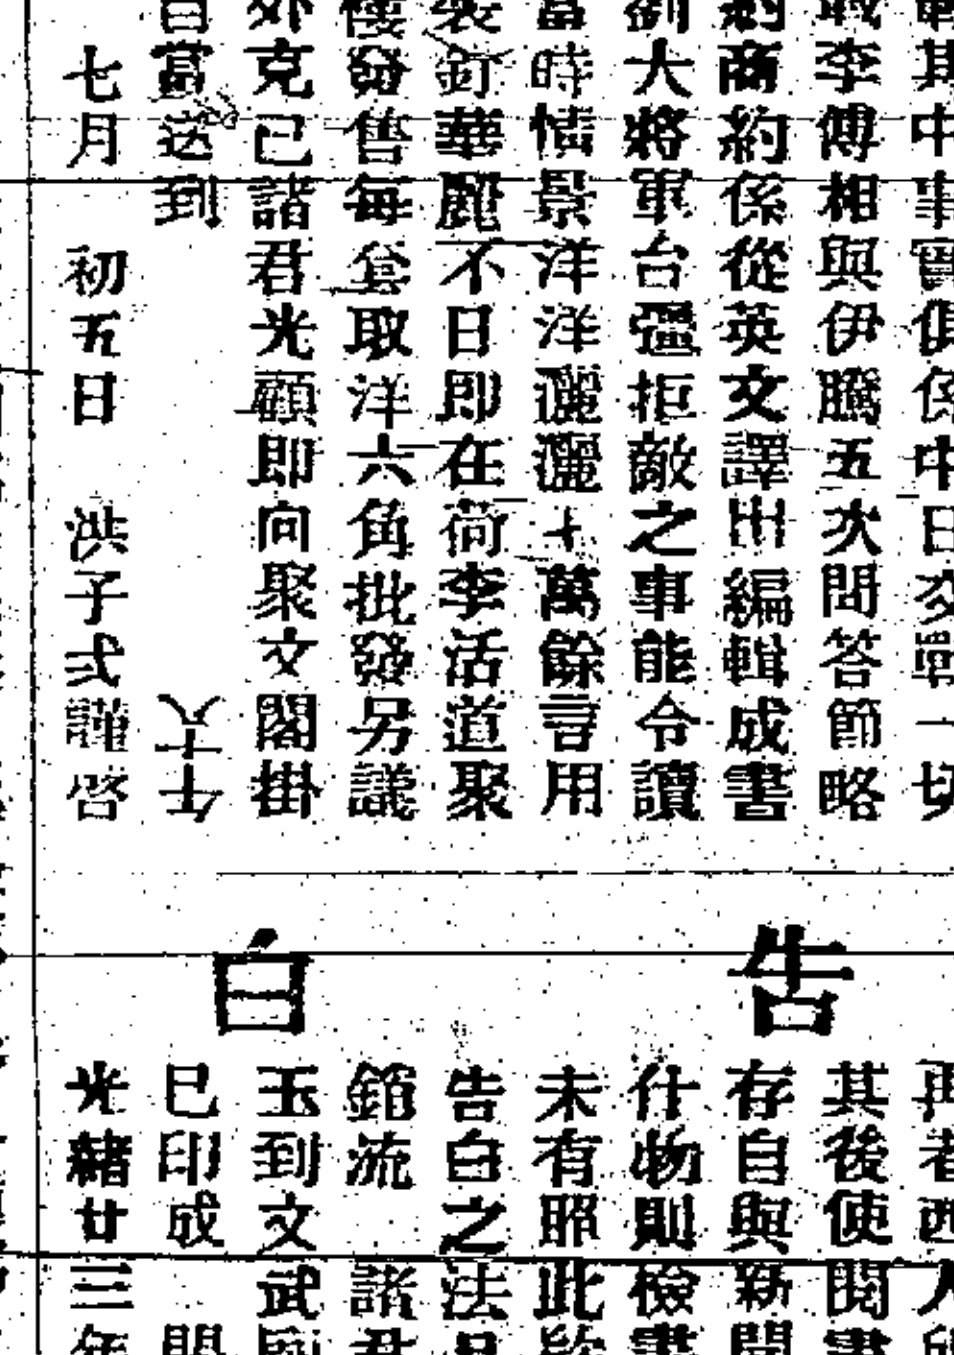 其中事實俱係中日交戰一切
李傅相與伊騰五次問答節略
商約係從英文譯出編輯成書
大將軍台彊拒敵之事能令讀
當時情景洋洋灑灑十萬餘言用
裝釘華麗不日即在荷李活道聚
樓發售每套取洋六角批發另議
外克己諸君光顧即向聚文閣掛
當送到
七月 初五日 洪子弍謹啓
告白
再者西人
其後使閱書
存自與新聞
什物則檢書
未有照此
告白之法
諸君
玉到文武
已印成
光緒廿三年